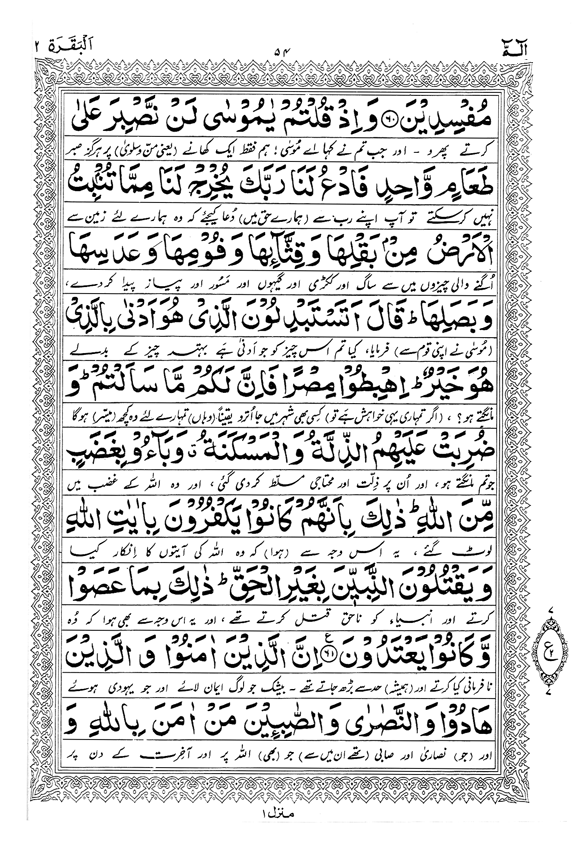 الٓمّٓ
۵۴
اَلْبَقَرَة ۲
مُفْسِدِيْنَ ﴿۶۰﴾ وَاِذْ قُلْتُمْ يٰمُوْسٰى لَنْ نَّصْبِرَ عَلٰى
کرتے پھرو - اور جب تم نے کہا اے موسٰی! ہم فقط ایک کھانے (یعنی منّ و سلویٰ) پر ہرگز صبر
طَعَامٍ وَّاحِدٍ فَادْعُ لَنَا رَبَّكَ يُخْرِجْ لَنَا مِمَّا تُنْۢبِتُ
نہیں کر سکتے تو آپ اپنے رب سے (ہمارے حق میں) دعا کیجئے کہ وہ ہمارے لئے زمین سے
الْاَرْضُ مِنْۢ بَقْلِهَا وَقِثَّآئِهَا وَفُوْمِهَا وَعَدَسِهَا
اگنے والی چیزوں میں سے ساگ اور ککڑی اور گیہوں اور مسور اور پیاز پیدا کر دے،
وَبَصَلِهَا ؕ قَالَ اَتَسْتَبْدِلُوْنَ الَّذِيْ هُوَ اَدْنٰى بِالَّذِيْ
(موسٰی نے اپنی قوم سے) فرمایا، کیا تم اس چیز کو جو ادنٰی ہے بہتر چیز کے بدلے
هُوَ خَيْرٌ ؕ اِهْبِطُوْا مِصْرًا فَاِنَّ لَكُمْ مَّا سَاَلْتُمْ ؕ وَ
مانگتے ہو؟، (اگر تمہاری یہی خواہش ہے تو) کسی بھی شہر میں جا اترو یقیناً (وہاں) تمہارے لئے وہ کچھ (میسر) ہو گا
ضُرِبَتْ عَلَيْهِمُ الذِّلَّةُ وَالْمَسْكَنَةُ وَبَآءُوْ بِغَضَبٍ
جو تم مانگتے ہو، اور ان پر ذلت اور محتاجی مسلط کر دی گئی، اور وہ اللہ کے غضب میں
مِّنَ اللّٰهِ ؕ ذٰلِكَ بِاَنَّهُمْ كَانُوْا يَكْفُرُوْنَ بِاٰيٰتِ اللّٰهِ
لوٹ گئے، یہ اس وجہ سے (ہوا) کہ وہ اللہ کی آیتوں کا انکار کیا
وَيَقْتُلُوْنَ النَّبِيّٖنَ بِغَيْرِ الْحَقِّ ؕ ذٰلِكَ بِمَا عَصَوْا
کرتے اور انبیاء کو ناحق قتل کرتے تھے، اور یہ اس وجہ سے بھی ہوا کہ وہ
وَّكَانُوْا يَعْتَدُوْنَ ﴿۶۱﴾ ع اِنَّ الَّذِيْنَ اٰمَنُوْا وَالَّذِيْنَ
نافرمانی کیا کرتے اور (ہمیشہ) حد سے بڑھ جاتے تھے - بیشک جو لوگ ایمان لائے اور جو یہودی ہوئے
هَادُوْا وَالنَّصٰرٰى وَالصّٰبِـِٕيْنَ مَنْ اٰمَنَ بِاللّٰهِ وَ
اور (جو) نصاریٰ اور صابی (تھے ان میں سے) جو (بھی) اللہ پر اور آخرت کے دن پر
ع
منزل ۱